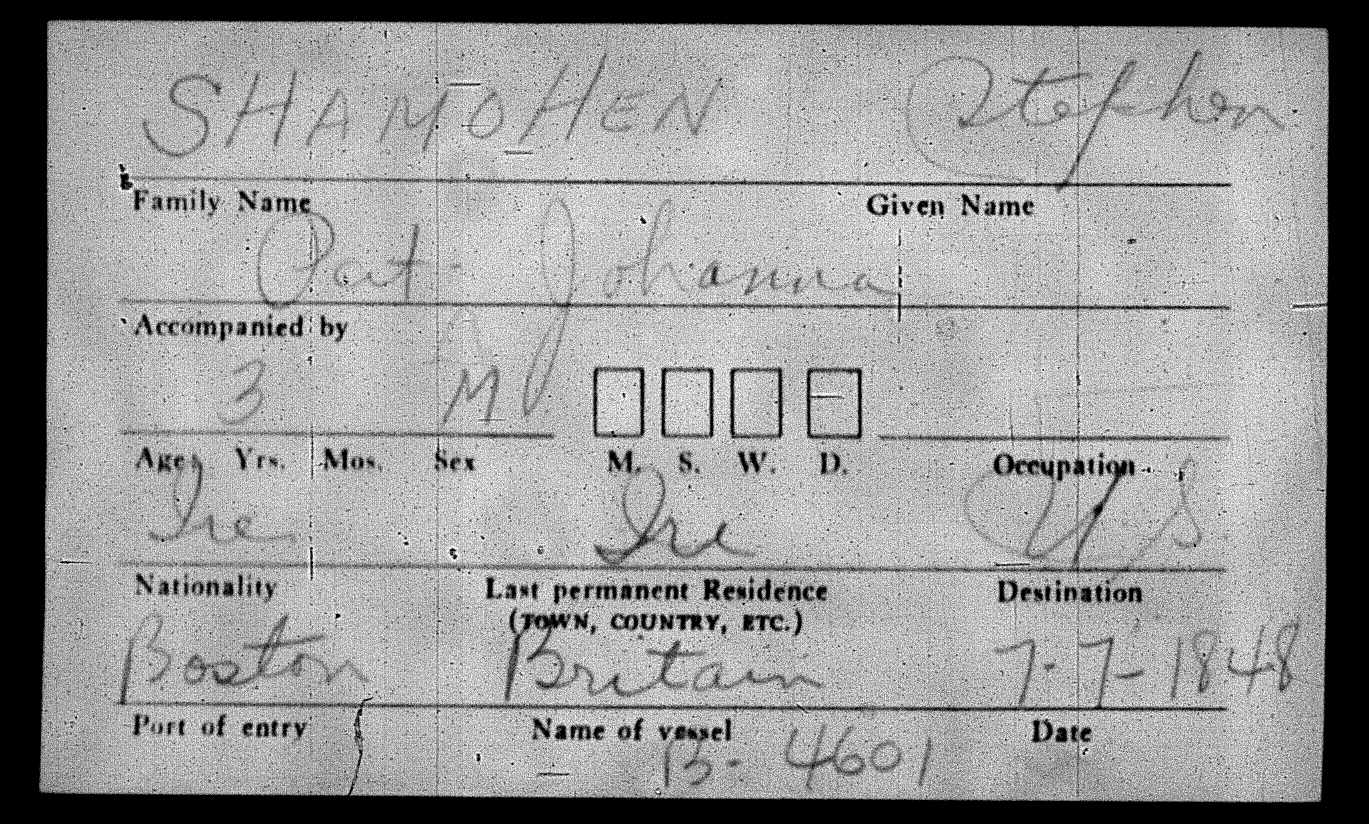 SHAMOHEN Stephen
Family Name Given Name
Pat- Johanna
Accompanied by
3 M
Age Yrs. Mos. Sex M. S. W. D. Occupation
Ire Ire US
Nationality Last permanent Residence Destination
(TOWN, COUNTRY, ETC.)
Boston Britain 7-7-1848
Port of entry Name of vessel Date
B- 4601